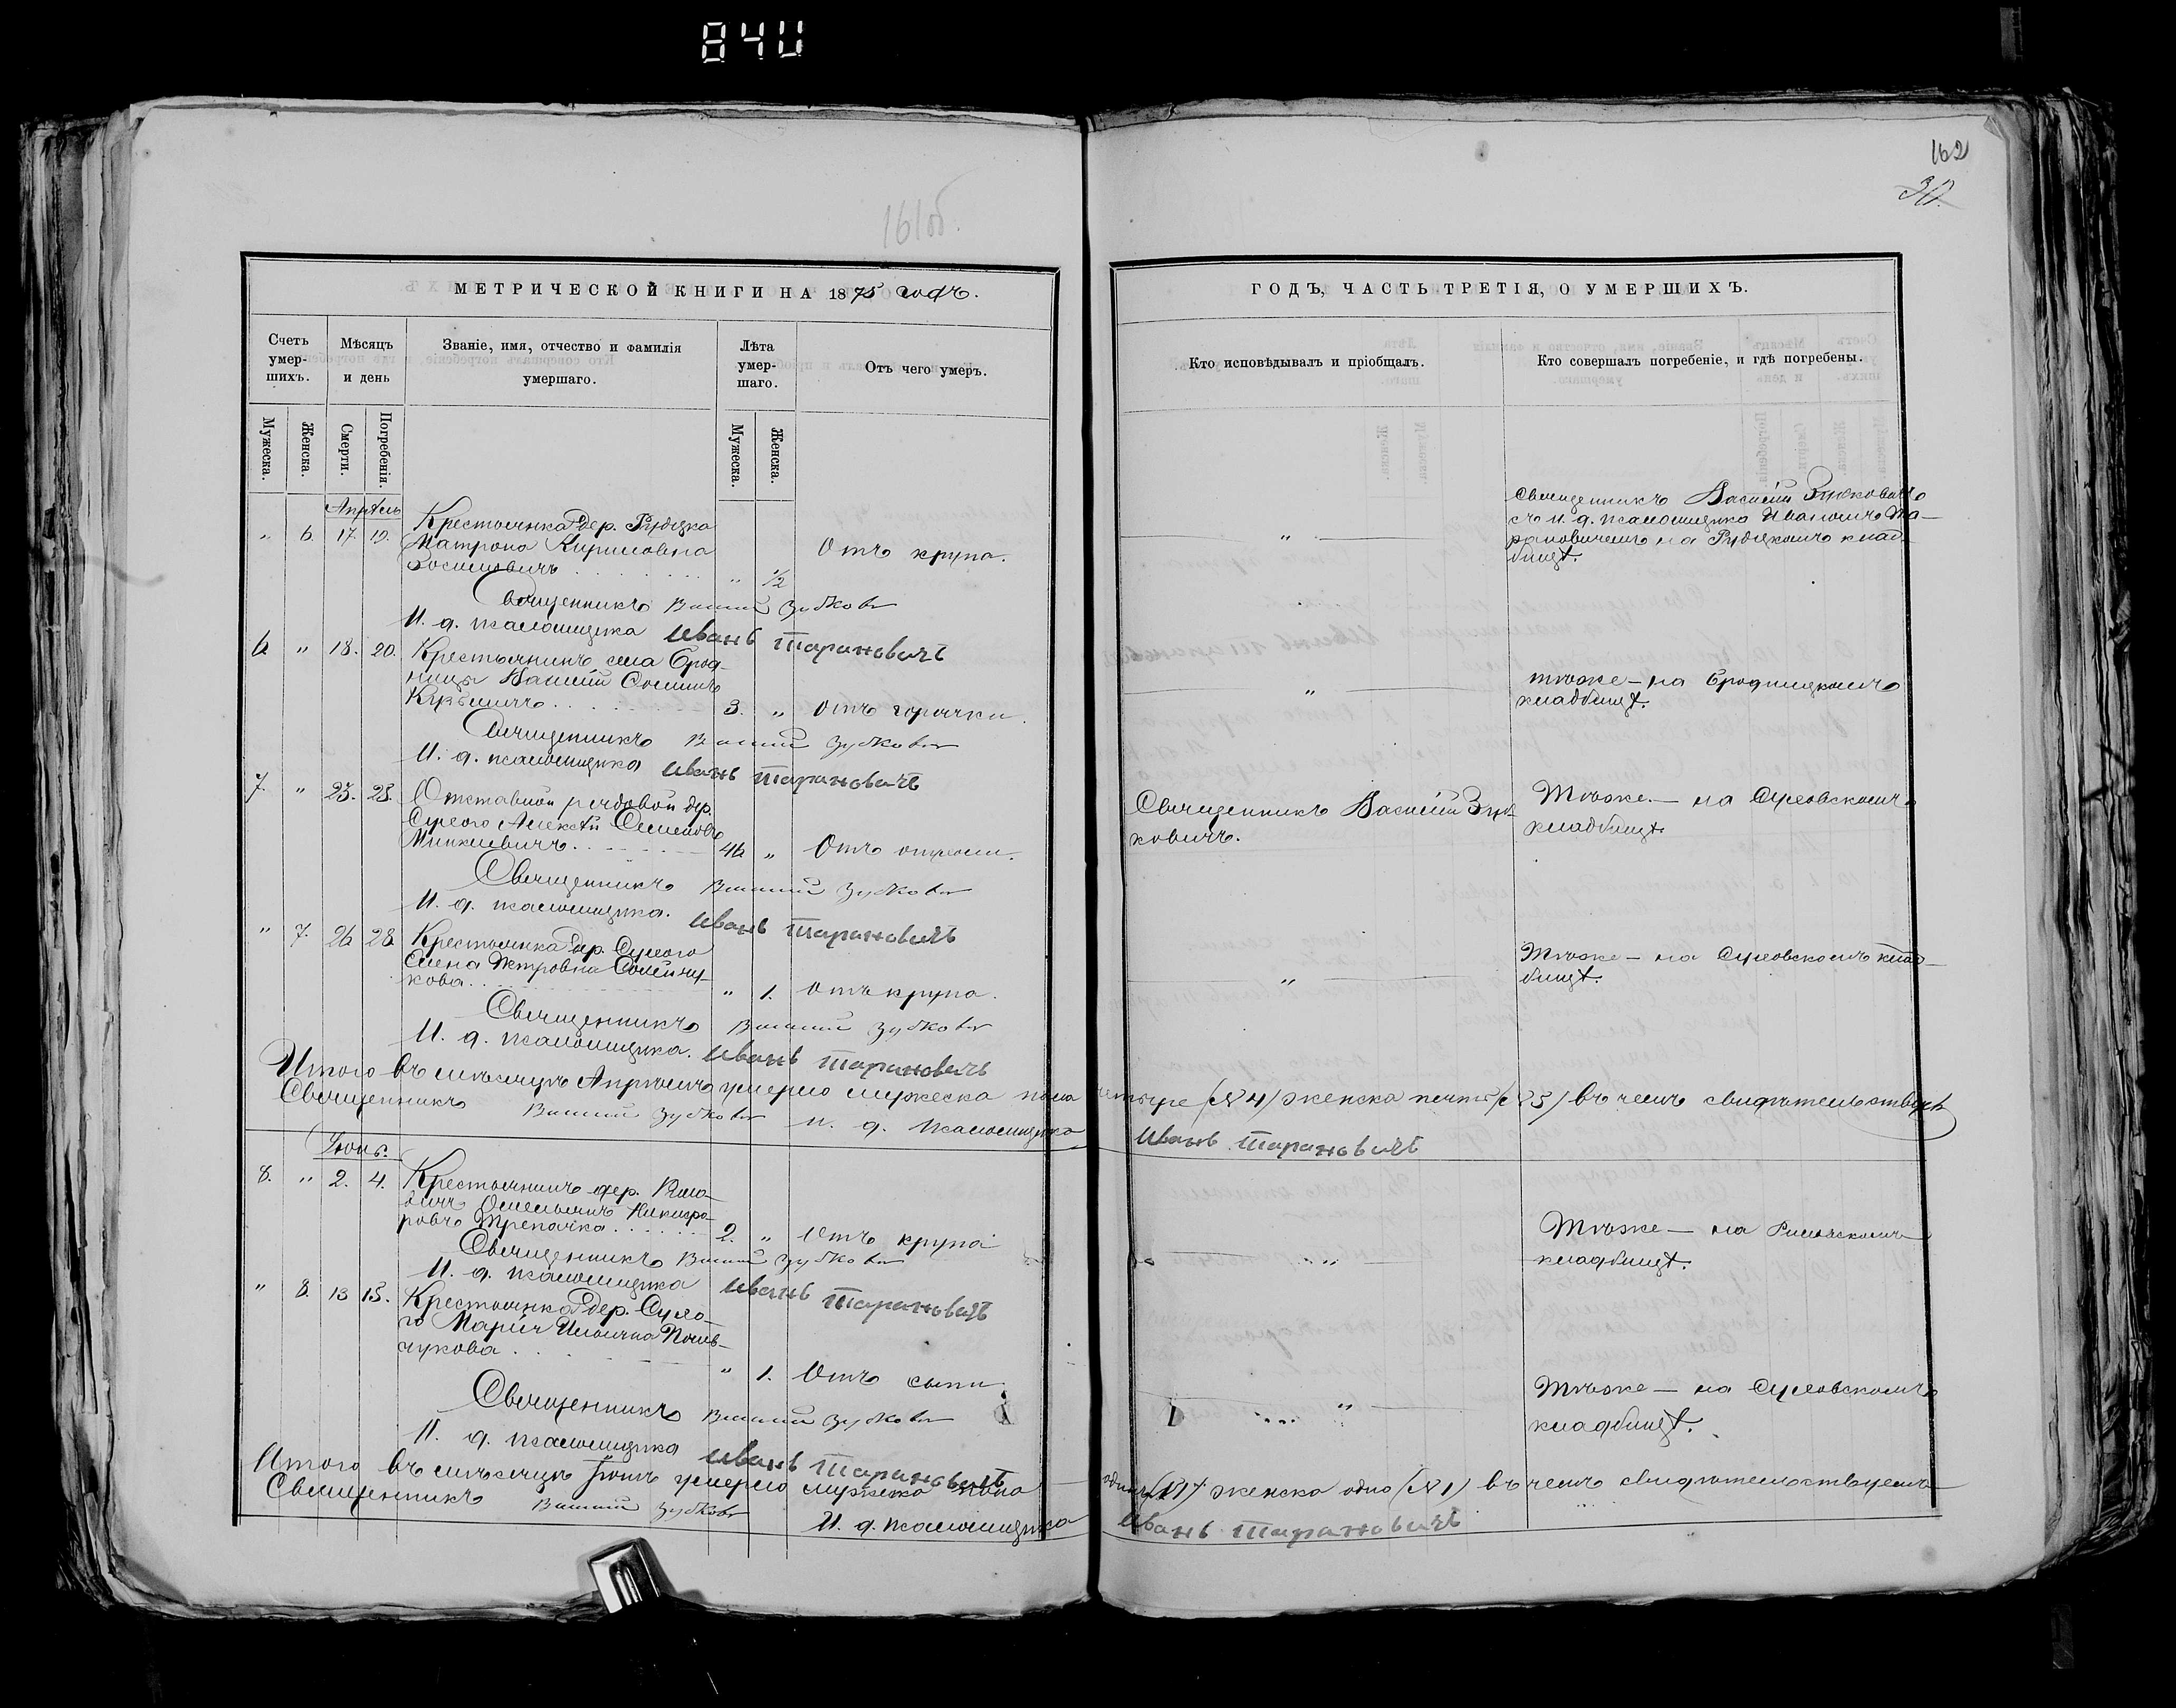 840
162
30.
161об.
МЕТРИЧЕСКОЙ КНИГИ НА 1875 годъ.
Счетъ умер-шихъ.
Мѣсяцъ и день
Званіе, имя, отчество и фамилія умершаго.
Лѣта умер-шаго.
Отъ чего умеръ.
Мужеска.
Женска.
Смерти.
Погребенія.
Мужеска.
Женска.
Апрѣль
" 6. 17. 19. Крестьянка дер. Рудска
Матрона Кирилловна
" 1/2 Отъ крупа.
Священникъ Василій
И. д. псаломщика Иванъ Тарановичъ
6 " 18. 20. Крестьянинъ села Брод-
ницы Василій
3. " Отъ горячки.
Священникъ Василій
И. д. псаломщика Иванъ Тарановичъ
7. " 23. 28. Отставной рядовой дер.
Сухого Алексѣй Семеновъ
Минкевичъ 46 " Отъ
Священникъ Василій
И. д. псаломщика. Иванъ Тарановичъ
" 7. 26 28. Крестьянка дер. Сухого
Елена Петровна
кова. " 1. Отъ крупа.
Священникъ Василій
И. д. псаломщика. Иванъ Тарановичъ
Итого въ мѣсяцѣ Апрѣлѣ умерло мужеска пола
Священникъ Василій И. д. псаломщика
Іюнь.
8. " 2. 4. Крестьянинъ дер.
Никифо-
ровъ 2. " Отъ крупа
Священникъ Василій
И. д. псаломщика Иванъ Тарановичъ
" 8. 13 15. Крестьянка дер. Сухо-
го Марія Ильична Полѣ-
чукова " 1. Отъ сыпи
Священникъ Василій
И. д. псаломщика Иванъ Тарановичъ
Итого въ мѣсяцѣ Іюнѣ умерло мужеска пола
Священникъ Василій
И. д. псаломщика
ГОДЪ, ЧАСТЬ ТРЕТІЯ, О УМЕРШИХЪ.
Кто исповѣдывалъ и пріобщалъ.
Кто совершалъ погребеніе, и гдѣ погребены.
Священникъ Василій
съ и. д. псаломщика Иваномъ Та-
" рановичемъ на Рудскомъ клад-
бищѣ.
" тоже — на Бродницкомъ
кладбищѣ.
Священникъ Василій Тоже. — на Суховскомъ
ковичъ. кладбищѣ
Тоже — на Суховскомъ клад-
" бищѣ.
четыре (№ 4) женска пять (№ 5) въ чемъ свидѣтельствуемъ
Иванъ Тарановичъ
Тоже — на
" кладбищѣ.
Тоже — на Суховскомъ
" кладбищѣ.
одинъ (№ 1) женска одно (№ 1) въ чемъ свидѣтельствуемъ
Иванъ Тарановичъ